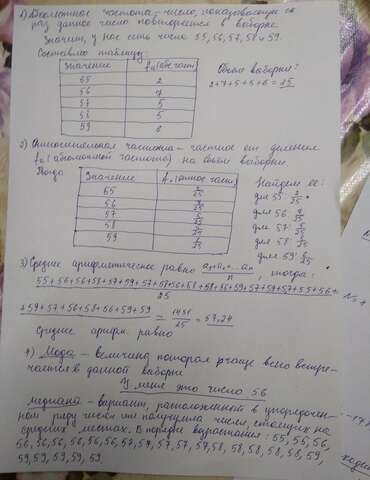 1) Абсолютная частота - число, показывающее ск.
раз данное число повторяется в выборке.
Значит, у нас есть числа 55, 56, 57, 58 и 59.
Составляю таблицу:
Значение
55 2
56 7
57 5
58 5
59 6
Объем выборки:
2+7+5+5+6=25
2) Относительная частота - частное от деления
fₐ (абсолютной частоты) на объем выборки
Тогда
Значение
55 2/25
56 7/25
57 5/25
58 5/25
59 6/25
Найдем её:
для 55: 2/25
для 56: 7/25
для 57: 5/25
для 58: 5/25
для 59: 6/25
3) Среднее арифметическое равно a₁+a₂+...aₙ/n, тогда:
25
+59+57+56+58+56+59+59 = 1431/25 = 57,24
Среднее арифм. равно
4) Мода - величина которая чаще всего встре-
чается в данной выборке
У меня это число 56
медиана - вариант, расположенной в упорядочен-
ном ряду чисел или полученная числа, стоящих на
средних местах. В порядке возрастания: 55, 55, 56,
56, 56, 56, 56, 56, 56, 57, 57, 57, 57, 57, 58, 58, 58, 58, 58, 59,
59, 59, 59, 59, 59.